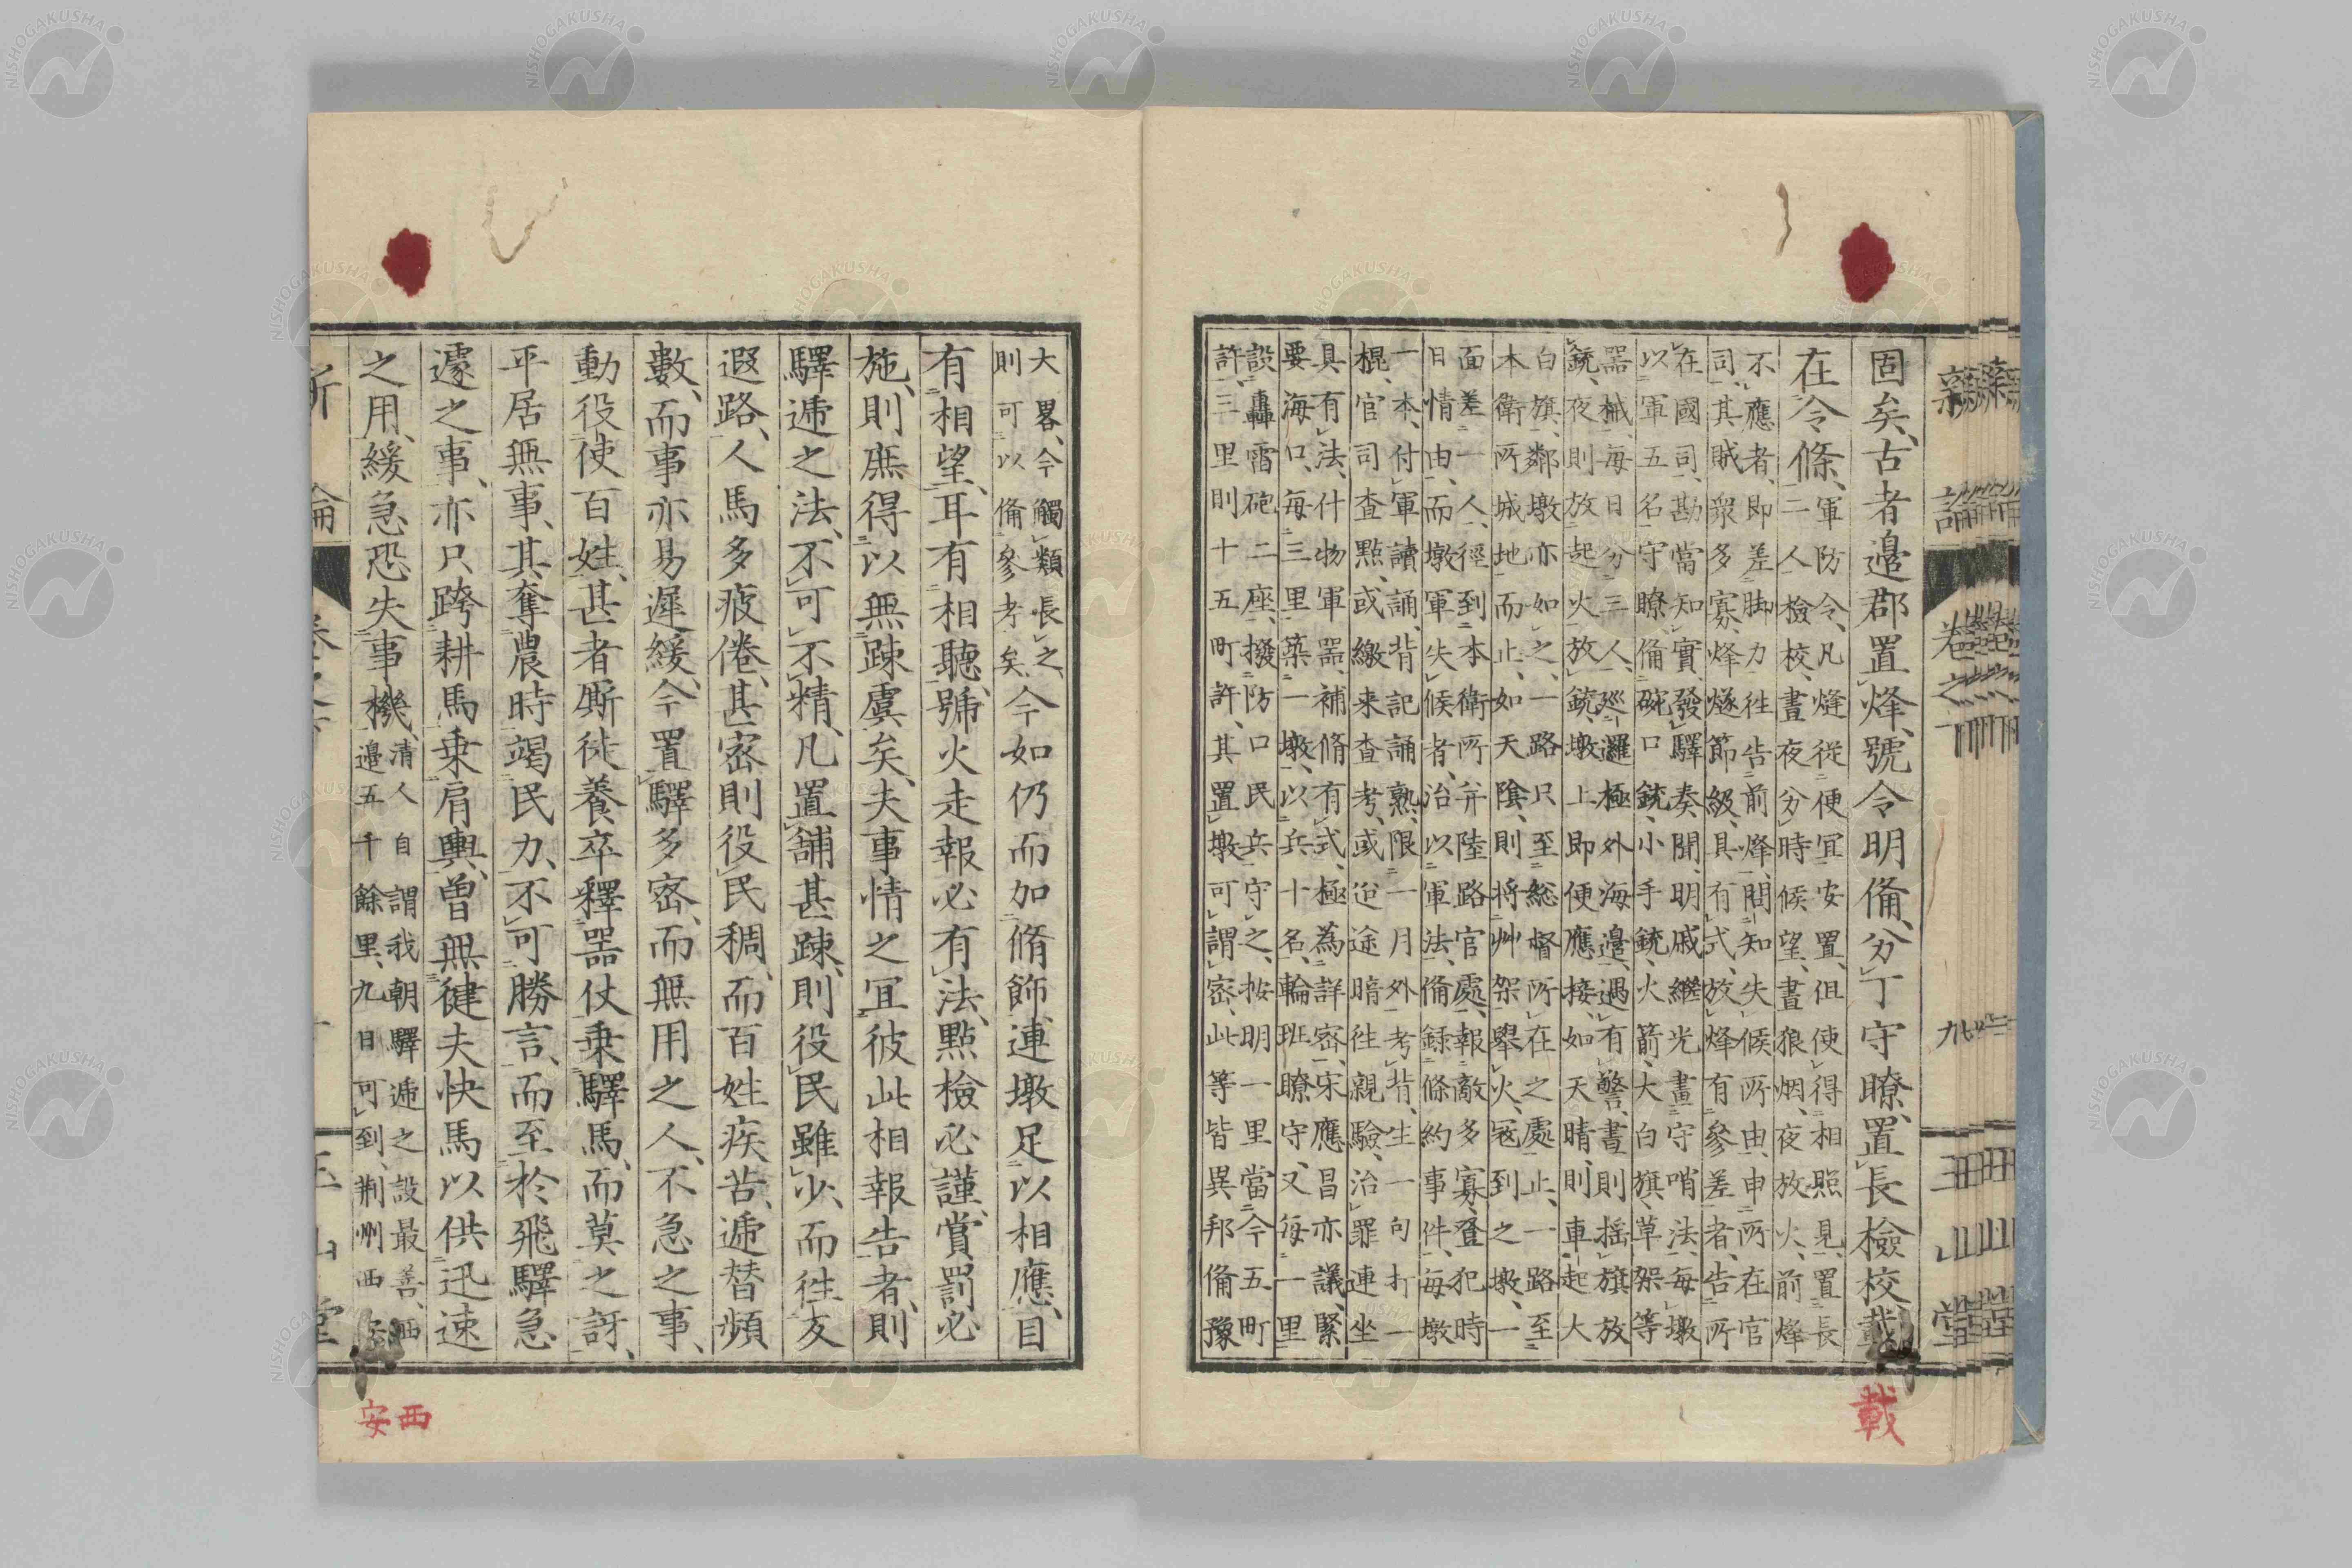 新論
卷之下
九
玉山堂
固矣、古者邊郡置烽、號令明備、分丁守瞭、置長檢校載
在令條、
軍防令、凡烽從便宜安置、但使得相照見、置長
二人檢校、晝夜分時候望、晝狼烟、夜放火、前烽
不應者、即差脚力徃告前烽、問知失候所由、申所在官
司、其賊衆多寡、烽燧節級、具有式、放烽有參差者、告所
在國司、勘當知實、發驛奏聞、明戚繼光畫守哨法、每墩
以軍五名守瞭、備碗口銃、小手銃、火箭、大白旗、草架等
器械、每日分三人、廵邏極外海邊、遇有警、晝則揺旗放
銃、夜則放起火放銃、墩上即便應接、如天晴、則車起大
白旗、鄰墩亦如之、一路只至総督所在之處止、一路至
本衛所城地而止、如天陰、則将艸架舉火、冦到之墩、一
面差一人、徑到本衛所并陸路官處、報敵多寡、登犯時
日情由、而墩軍失候者、治以軍法、備録條約事件、每墩
一本、付軍讀誦、背記誦熟、限一月外考、背生一句打一
棍、官司查點、或繳来查考、或迨途暗徃親驗、治罪連坐
具有法、什物軍噐、補脩有式、極為詳密、宋應昌亦議、緊
要海口、每三里築一墩、以兵十名、輪班瞭守、又每一里
設轟雷砲二座、撥防口民兵守之、按明一里當今五町
許、三里則十五町許、其置墩可謂密、此等皆異邦備豫
載
大畧、今觸類長之、
則可以備參考矣、
今如仍而加脩飾、連墩足以相應、目
有相望、耳有相聽、號火走報必有法、點檢必謹、賞罰必
施、則庶得以無踈虞矣、夫事情之宜彼此相報告者、則
驛遞之法、不可不精、凡置舖甚踈、則役民雖少、而徃友
遐路、人馬多疲倦、甚密則役民稠、而百姓疾苦、遞替頻
數、而事亦易遲緩、今置驛多密、而無用之人、不急之事、
動役使百姓、甚者厮徒養卒釋噐仗乗驛馬、而莫之訝、
平居無事、其奪農時竭民力、不可勝言、而至於飛驛急
遽之事、亦只跨耕馬乗肩輿、曽無健夫快馬以供迅速
之用、緩急恐失事機、
清人自謂我朝驛遞之設最善、西
邊五千餘里、九日可到、荆州西安
西
安
新論
玉山堂